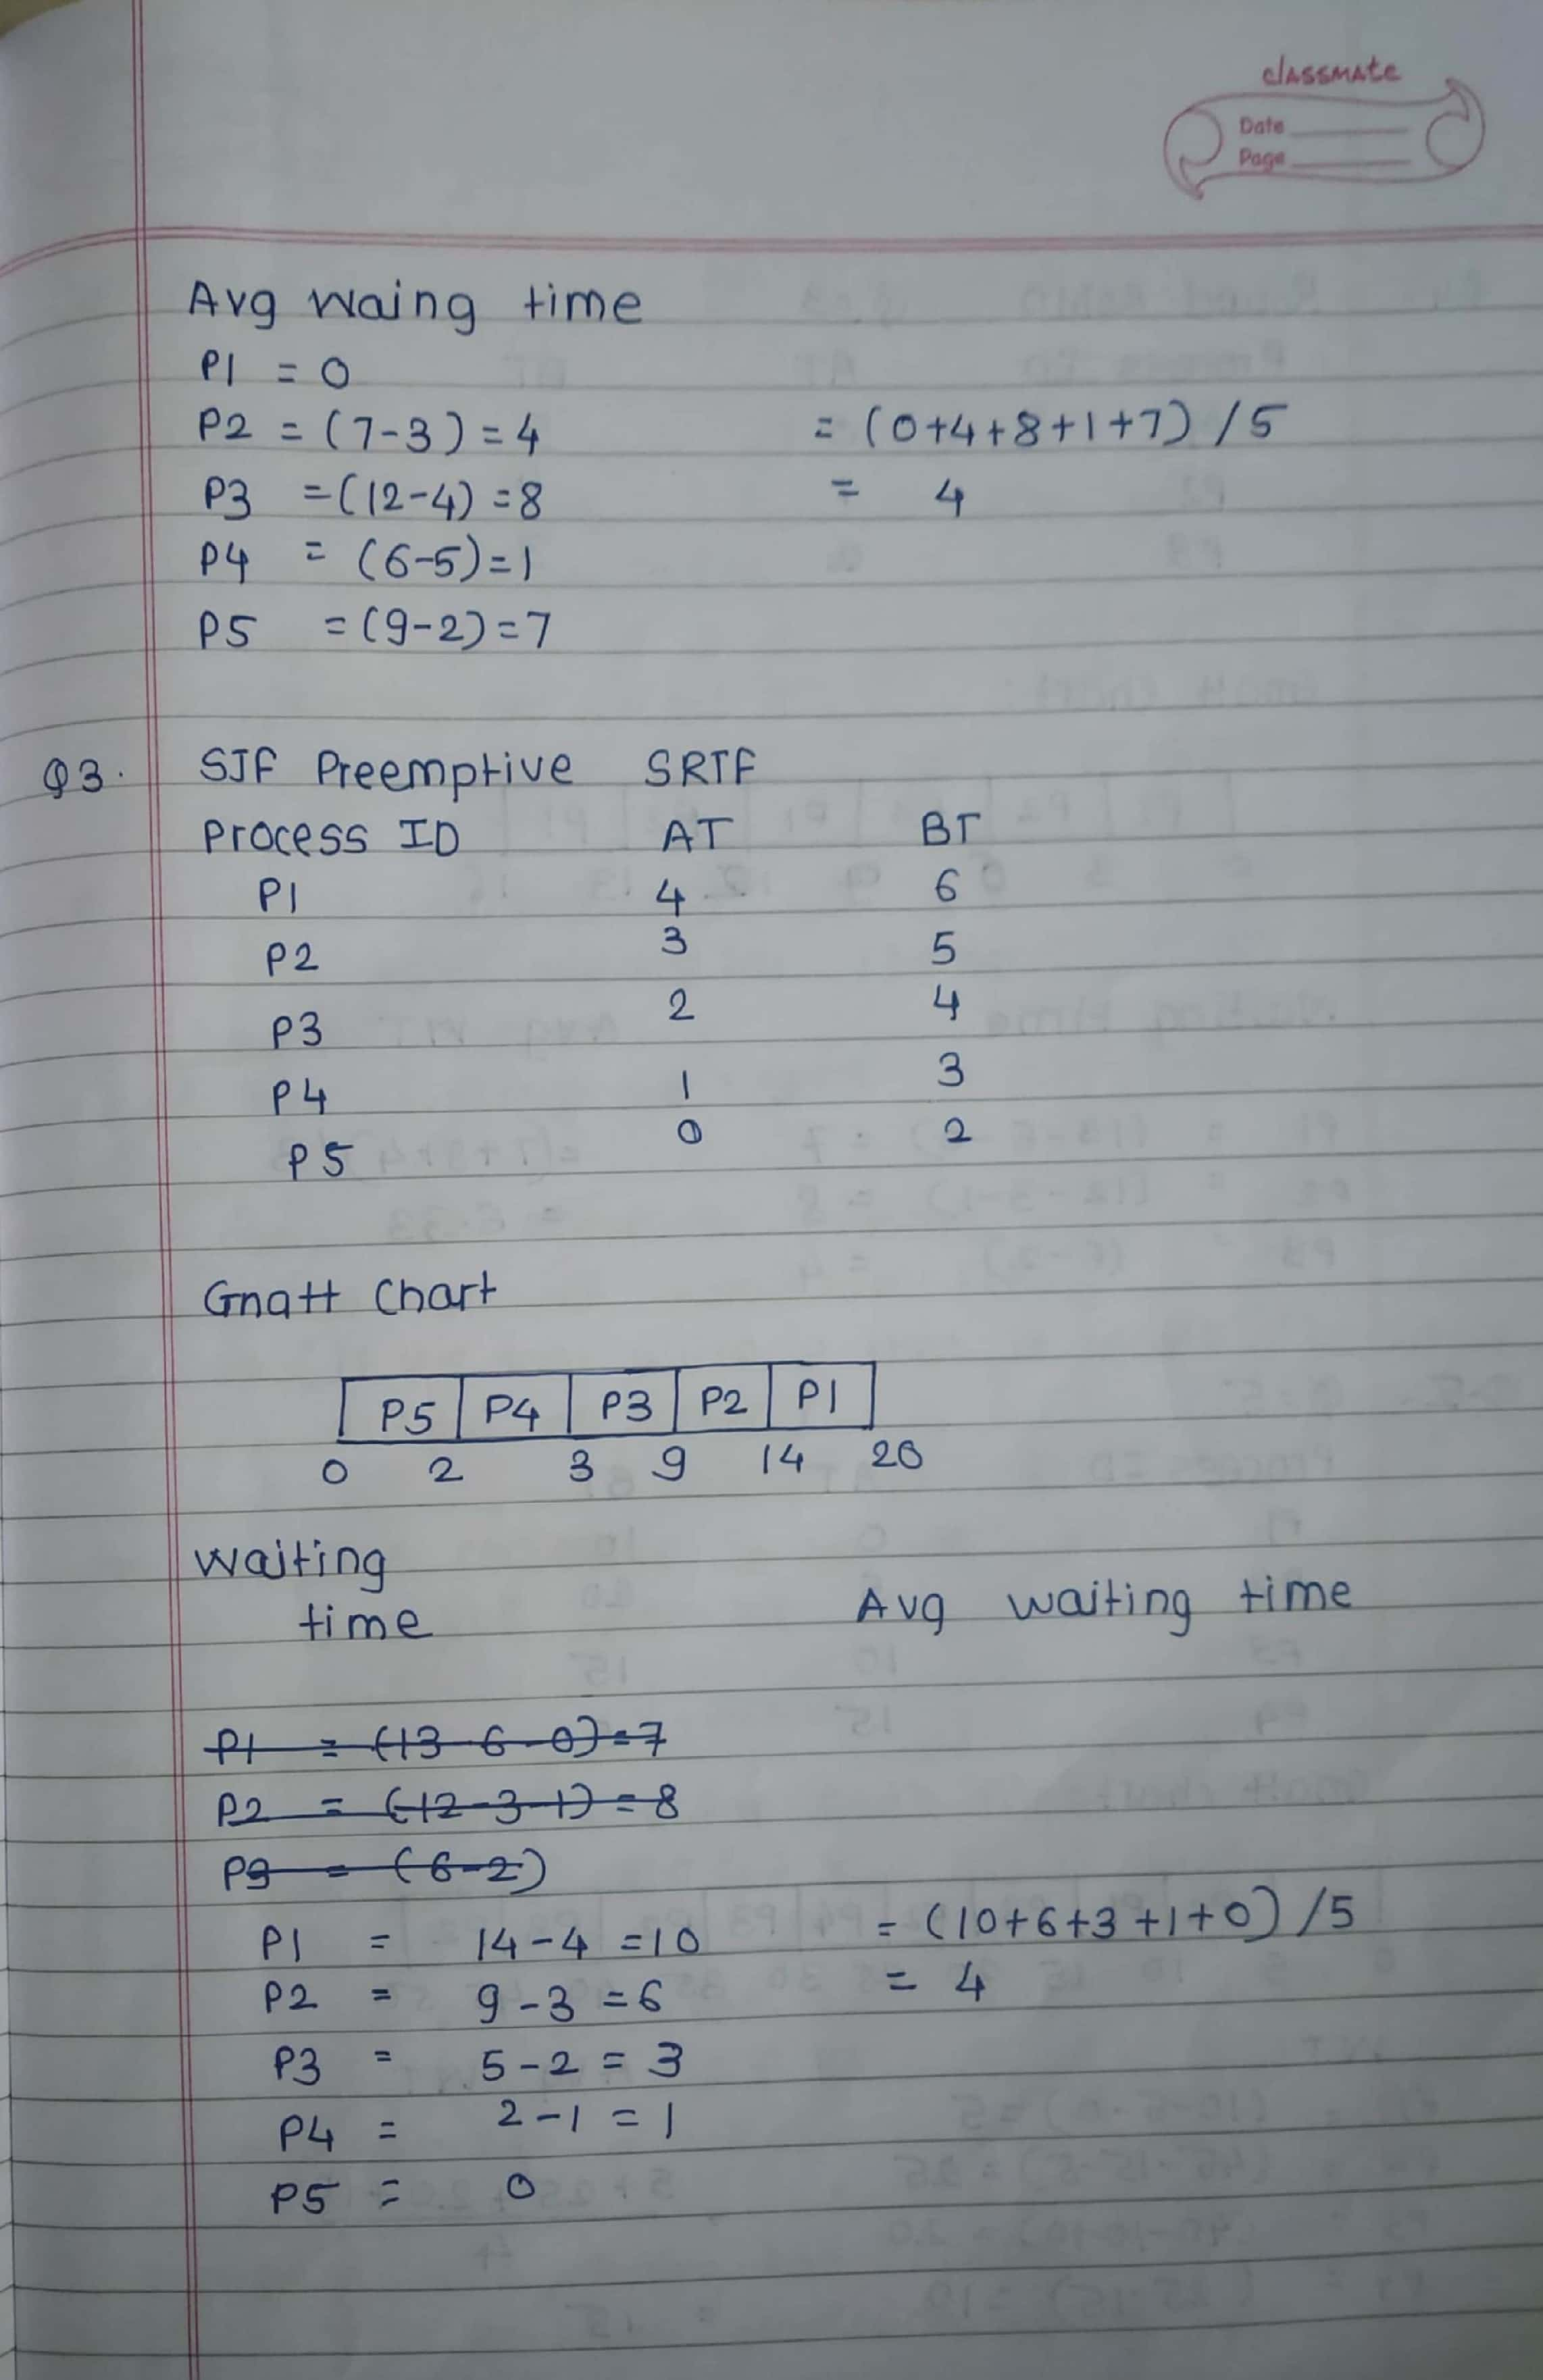 classmate
Date
Page
Avg waing time
P1 = 0
P2 = (7-3) = 4 = (0+4+8+1+7) / 5
P3 = (12-4) = 8 = 4
P4 = (6-5) = 1
P5 = (9-2) = 7
Q3. SJF Preemptive SRTF
Process ID AT BT
P1 4 6
P2 3 5
P3 2 4
P4 1 3
P5 0 2
Gnatt Chart
P5 P4 P3 P2 P1
0 2 3 9 14 20
Waiting
time Avg waiting time
P1 = (13-6-0) = 7
P2 = (12-3-1) = 8
P3 = (6-2)
P1 = 14-4 = 10 = (10+6+3+1+0) / 5
P2 = 9-3 = 6 = 4
P3 = 5-2 = 3
P4 = 2-1 = 1
P5 = 0